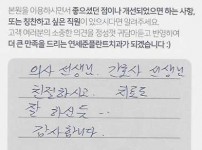 본원을 이용하시면서 좋으셨던 점이나 개선되었으면 하는 사항,
또는 칭찬하고 싶은 직원이 있으시다면 알려주세요.
고객 여러분의 소중한 의견을 정성껏 귀담아듣고 반영하여
더 큰 만족을 드리는 연세준플란트치과가 되겠습니다 :)
의사 선생님, 간호사 선생님
친절하시고 치료도
잘 하신듯 ..
감사합니다.